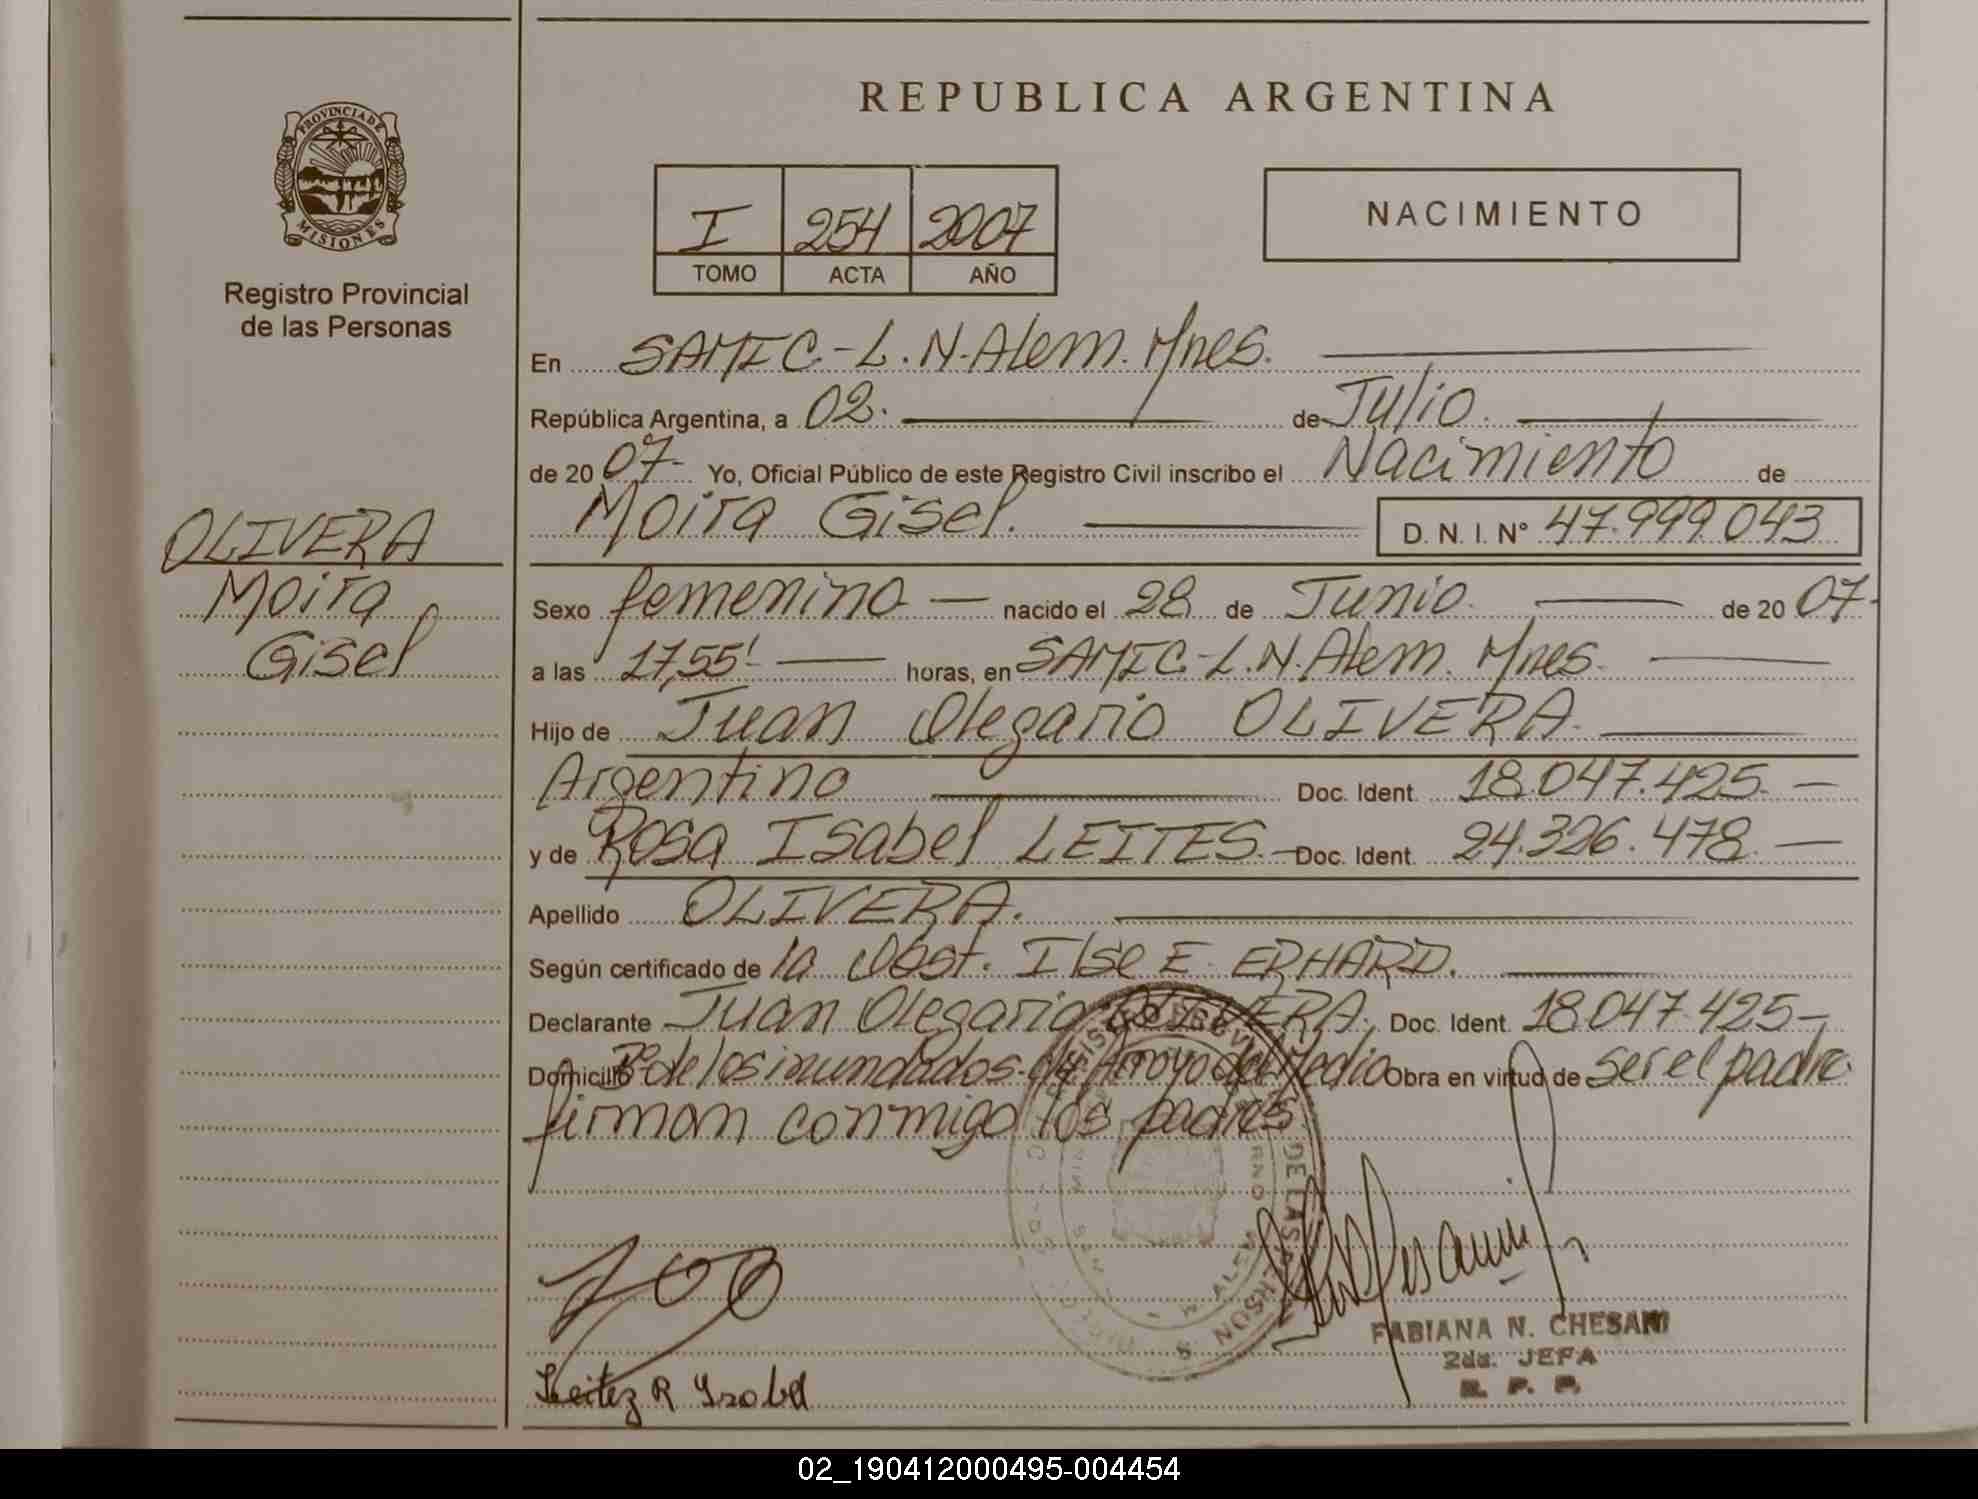 REPUBLICA ARGENTINA
PROVINCIA DE
MISIONES
Registro Provincial
de las Personas
I 254 2007
TOMO ACTA AÑO
NACIMIENTO
En SAMIC-L.N.Alem. Mnes.
República Argentina, a 02. de Julio.
de 20 07- Yo, Oficial Público de este Registro Civil inscribo el Nacimiento de
Moira Gisel. D. N. I. N° 47.999.043
OLIVERA
Moira
Gisel
Sexo femenino nacido el 28 de Junio. de 20 07-
a las 17,55' horas, en SAMIC-L.N.Alem. Mnes.
Hijo de Juan Olegario OLIVERA.
Argentino Doc. Ident. 18.047.425.-
y de Rosa Isabel LEITES.- Doc. Ident. 24.326.478.-
Apellido OLIVERA.
Según certificado de la Obst. Ilse E. ERHARD.
Declarante Juan Olegario OLIVERA. Doc. Ident. 18.047.425-
Domicilio B° de los inundados. Arroyo del Medio Obra en virtud de ser el padre.
firman conmigo los padres
Leitez R Ysabel
FABIANA N. CHESANI
2da. JEFA
R. P. P.
02_190412000495-004454